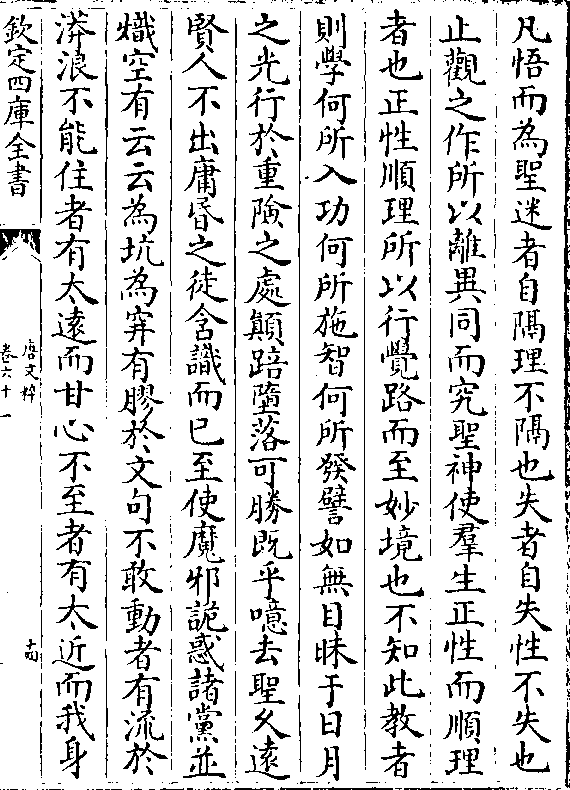 凡悟而為聖迷者自隔理不隔也失者自失性不失也
止觀之作所以離異同而究聖神使羣生正性而順理
者也正性順理所以行覺路而至妙境也不知此教者
則學何所入功何所施智何所發譬如無目昧于日月
之光行於重險之處顛踣墮落可勝既乎噫去聖久遠
賢人不出庸昏之徒含識而已至使魔邪詭惑諸黨並
熾空有云云為坑為穽有膠於文句不敢動者有流於
漭浪不能住者有太遠而甘心不至者有太近而我身
欽定四庫全書
唐文粹
卷六十一
十四